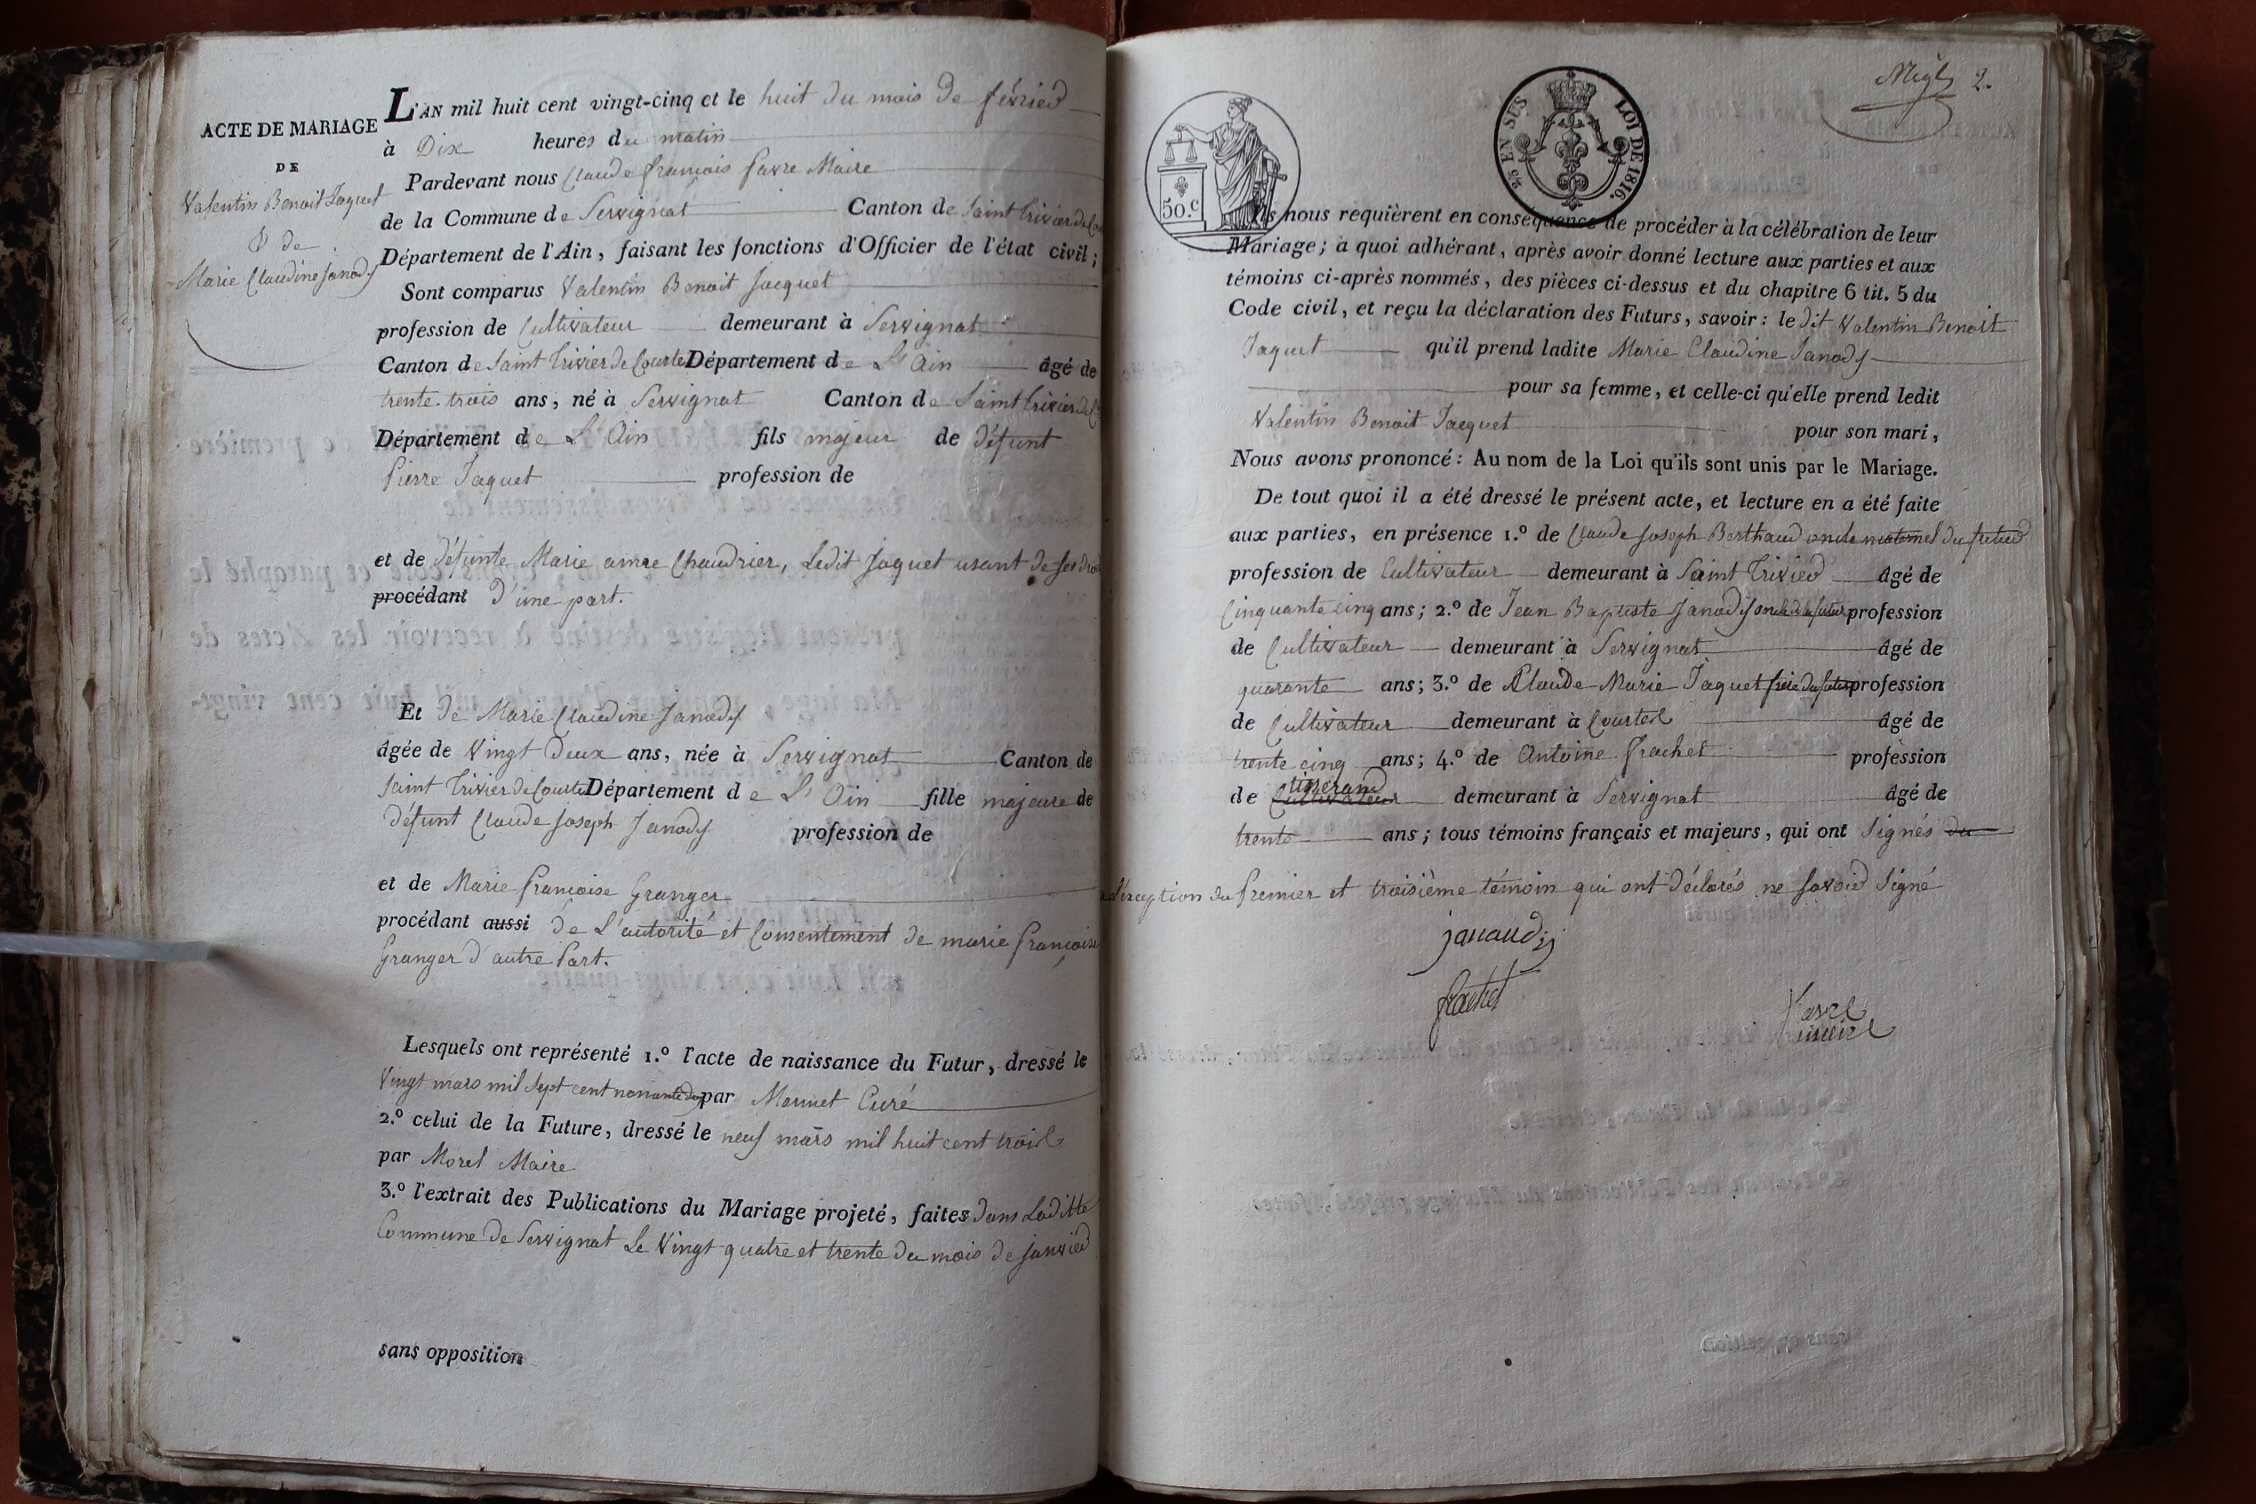 ACTE DE MARIAGE
DE
Valentin Benoit Jaquet
& de
Marie Claudine Janody
L'AN mil huit cent vingt-cinq et le huit du mois de février
à Dix heures du matin
Pardevant nous Claude françois favre Maire
de la Commune de Servignat Canton de Saint Trivier de
Département de l'Ain, faisant les fonctions d'Officier de l'état civil;
Sont comparus Valentin Benoit Jacquet
profession de Cultivateur demeurant à Servignat
Canton de Saint Trivier de Courtes Département de L'Ain âgé de
trente-trois ans, né à Servignat Canton de Saint Trivier de
Département de L'Ain fils majeur de défunt
Pierre Jaquet profession de
et de défunte Marie Chaudrier, Ledit Jaquet usant de ses
procédant d'une part.
Et de Marie Claudine Janody
âgée de Vingt Deux ans, née à Servignat Canton de
Saint Trivier de Courtes Département de L'Ain fille majeure de
défunt Claude Joseph Janody profession de
et de Marie françoise Granger
procédant aussi de L'autorité et Consentement de marie françoise
Granger d'autre Part.
Lesquels ont représenté 1.º l'acte de naissance du Futur, dressé le
Vingt mars mil Sept cent nonante deux par Monnet Curé
2.º celui de la Future, dressé le neuf mars mil huit cent trois
par Morel Maire
3.º l'extrait des Publications du Mariage projeté, faites dans Laditte
Commune de Servignat Le Vingt quatre et trente du mois de janvier
sans opposition
2.
50.c
25 EN SUS
LOI DE 1816.
Ils nous requièrent en conséquence de procéder à la célébration de leur
Mariage; à quoi adhérant, après avoir donné lecture aux parties et aux
témoins ci-après nommés, des pièces ci-dessus et du chapitre 6 tit. 5 du
Code civil, et reçu la déclaration des Futurs, savoir: le dit Valentin Benoit
Jaquet qu'il prend ladite Marie Claudine Janody
pour sa femme, et celle-ci qu'elle prend ledit
Valentin Benoit Jacquet pour son mari,
Nous avons prononcé: Au nom de la Loi qu'ils sont unis par le Mariage.
De tout quoi il a été dressé le présent acte, et lecture en a été faite
aux parties, en présence 1.º de Claude Joseph Berthaud oncle maternel du futur
profession de Cultivateur demeurant à Saint Trivier âgé de
Cinquante cinq ans; 2.º de Jean Baptiste Janody oncle de la future profession
de Cultivateur demeurant à Servignat âgé de
quarante ans; 3.º de Claude-Marie Jaquet frère du futur profession
de Cultivateur demeurant à Courtes âgé de
trente cinq ans; 4.º de Antoine frachet profession
tisserand
de Cultivateur demeurant à Servignat âgé de
trente ans; tous témoins français et majeurs, qui ont Signés du
à L'exception du Premier et troisième témoin qui ont déclarés ne Savoir Signé
janaudy
frachet
favre
maire